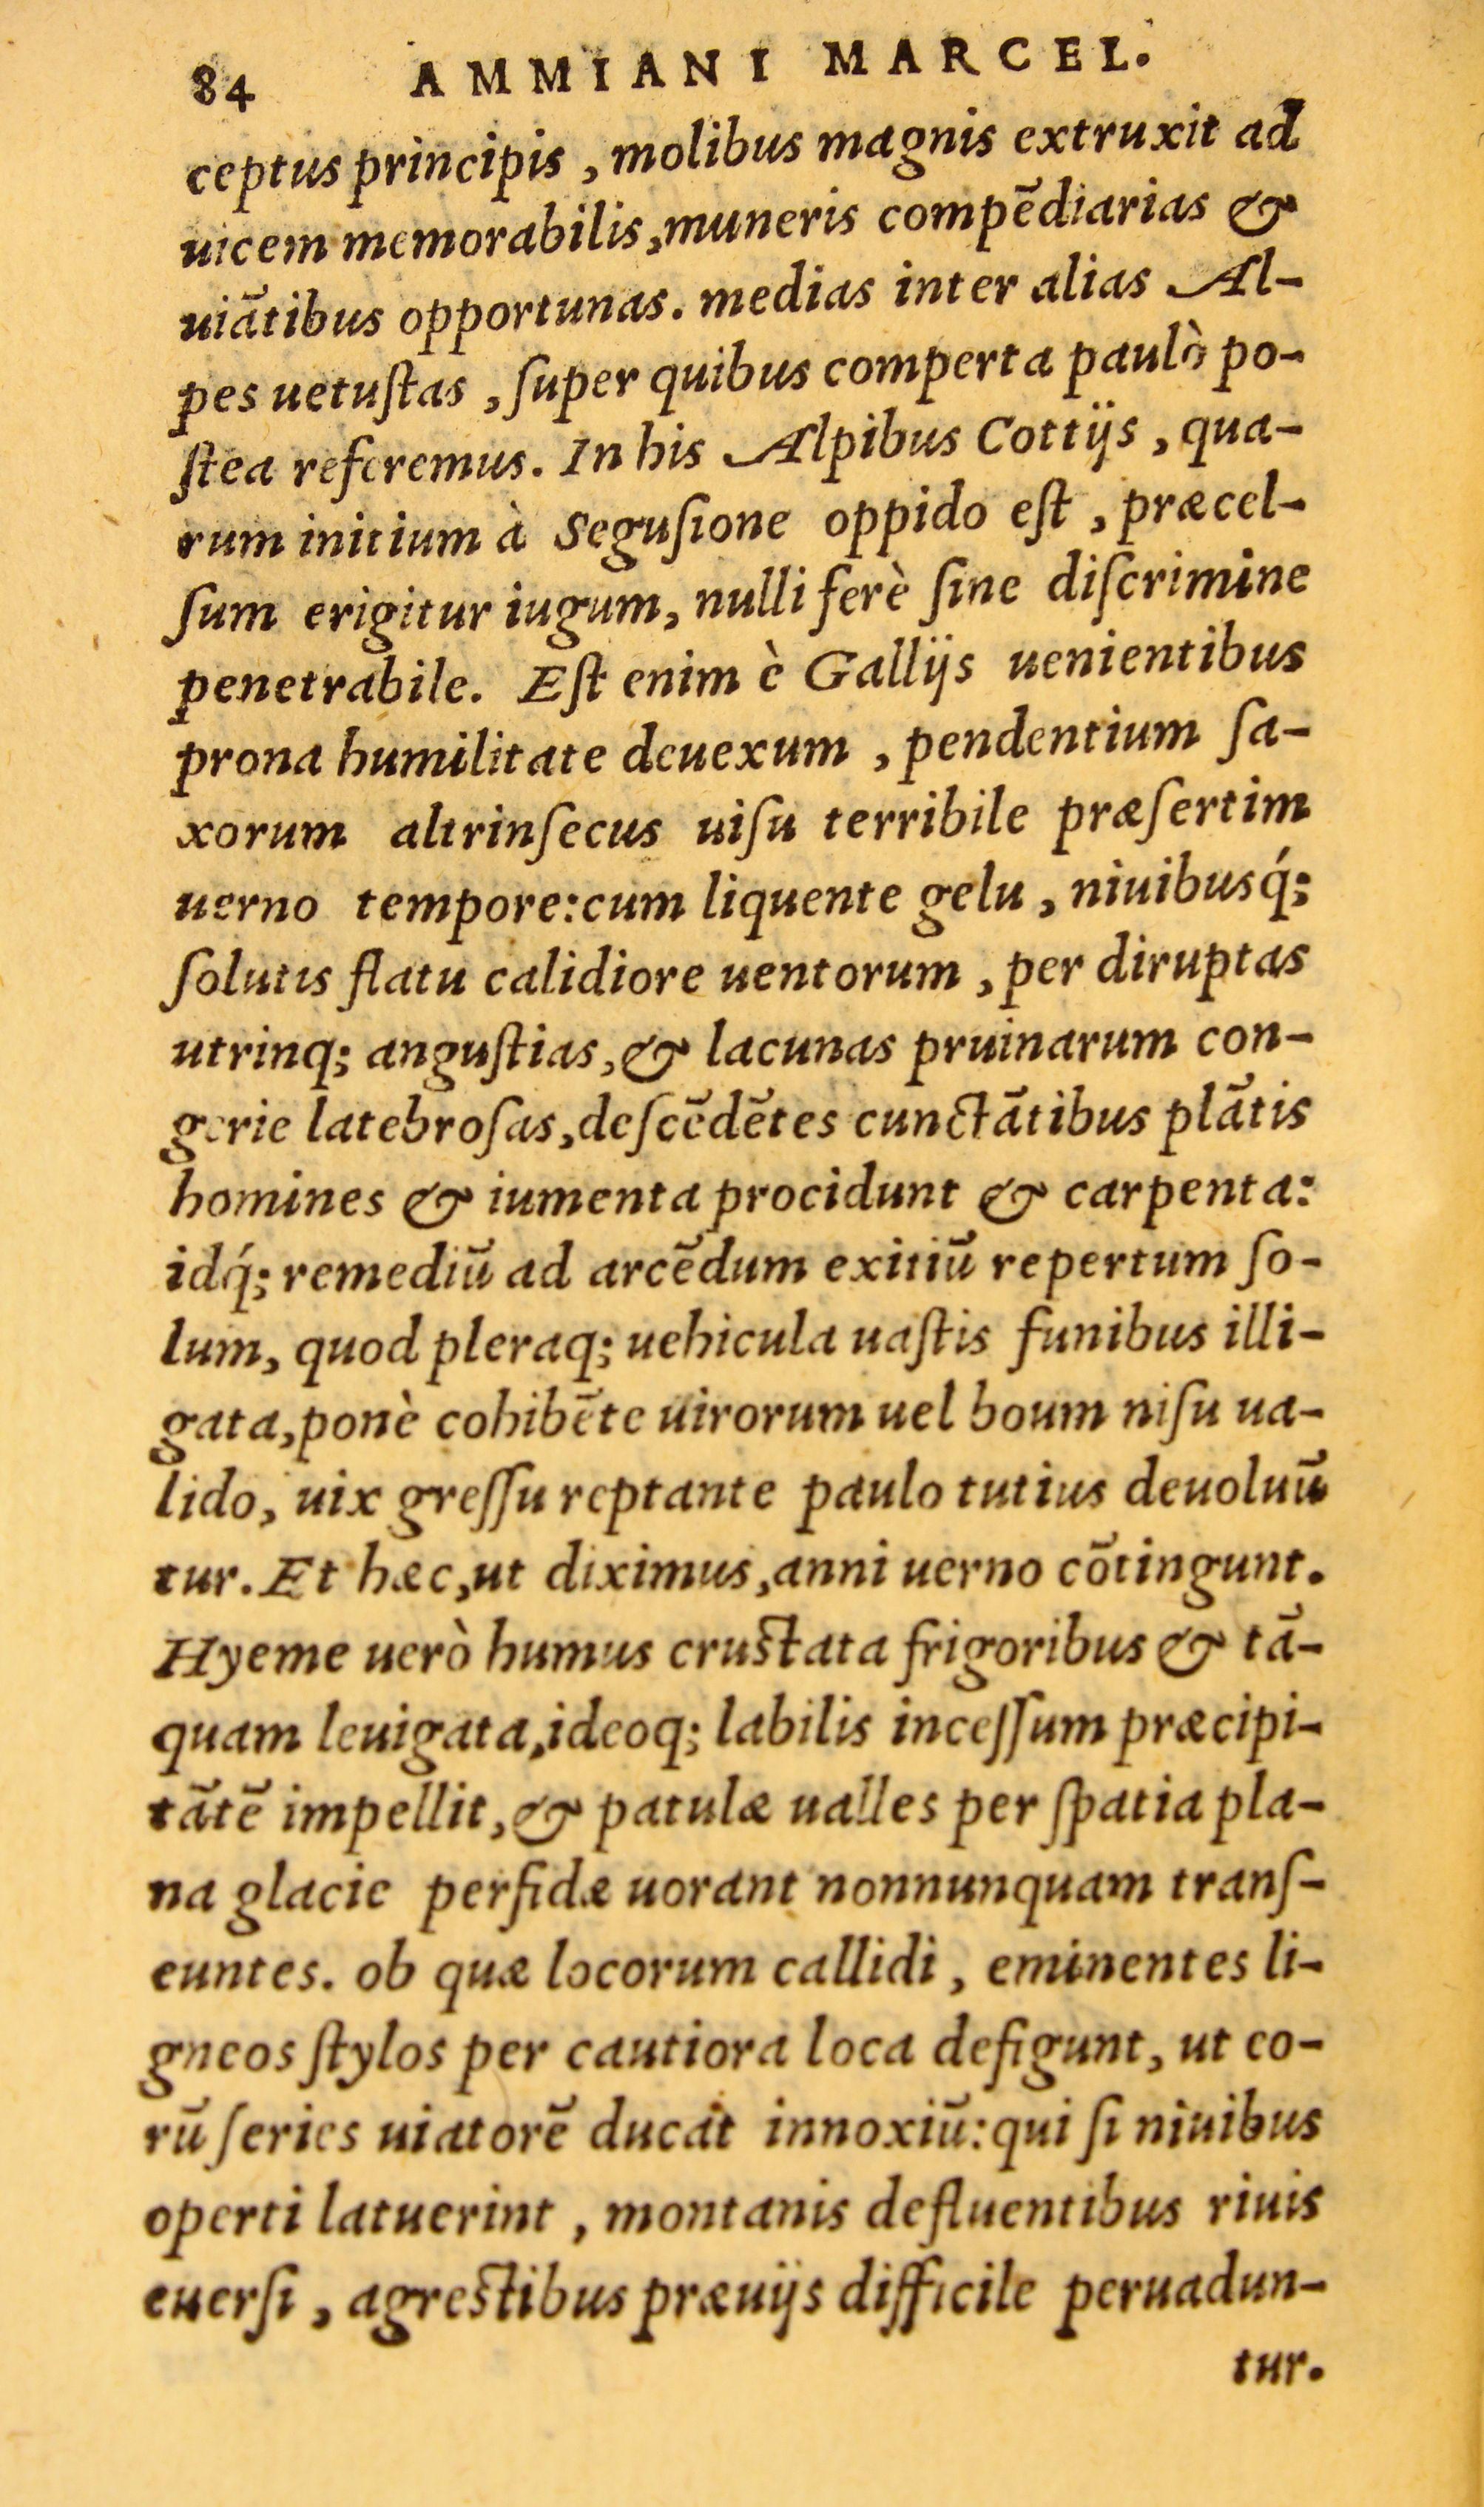 84 AMMIANI MARCEL.
ceptus principis, molibus magnis extruxit ad
uicem memorabilis, muneris compẽdiarias &
uiãtibus opportunas. medias inter alias Al-
pes uetuſtas, ſuper quibus comperta paulò po-
ſtea referemus. In his Alpibus Cottijs, qua-
rum initium à Seguſione oppido eſt, præcel-
ſum erigitur iugum, nulli ferè ſine diſcrimine
penetrabile. Eſt enim è Gallijs uenientibus
prona humilitate deuexum, pendentium ſa-
xorum altrinſecus uiſu terribile præſertim
uerno tempore: cum liquente gelu, niuibusq́;
ſolutis flatu calidiore uentorum, per diruptas
utrinq; anguſtias, & lacunas pruinarum con-
gerie latebroſas, deſcẽdẽtes cunctãtibus plãtis
homines & iumenta procidunt & carpenta:
idq́; remediũ ad arcẽdum exitiũ repertum ſo-
lum, quod pleraq; uehicula uaſtis funibus illi-
gata, ponè cohibẽte uirorum uel boum niſu ua-
lido, uix greſſu reptante paulo tutius deuoluũ
tur. Et hæc, ut diximus, anni uerno cõtingunt.
Hyeme uerò humus cruſtata frigoribus & tã-
quam leuigata, ideoq; labilis inceſſum præcipi-
tãtẽ impellit, & patulæ ualles per ſpatia pla-
na glacie perfidæ uorant nonnunquam tranſ-
euntes. ob quæ locorum callidi, eminentes li-
gneos ſtylos per cautiora loca defigunt, ut eo-
rũ ſeries uiatorẽ ducat innoxiũ: qui ſi niuibus
operti latuerint, montanis defluentibus riuis
euerſi, agreſtibus præuijs difficile peruadun-
tur.